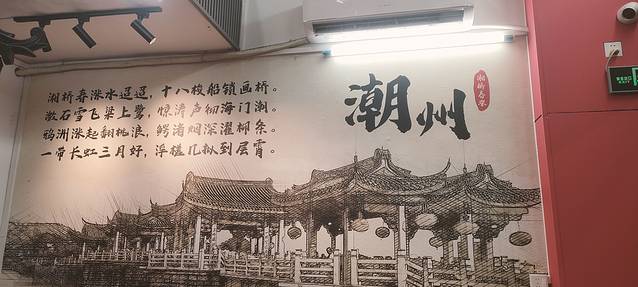 湘桥春涨水迢迢，十八梭船锁画桥。
激石雪飞梁上鹭，惊涛声彻海门潮。
鸦洲涨起翻桃浪，鳄渚烟深濯柳条。
一带长虹三月好，浮槎几拟到层霄。
潮州